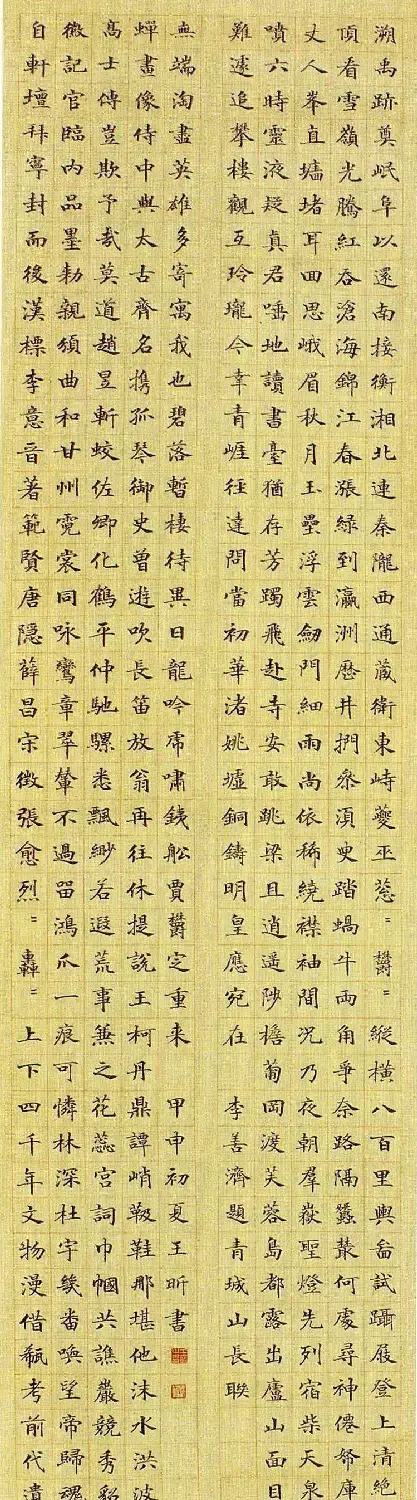 溯禹跡奠岷阜以還南接衡湘北連秦隴西通藏衛東峙夔巫葱〻鬱〻縱橫八百里輿啚試躡屐登上清絕
頂看雪嶺光騰紅吞滄海錦江春漲綠到瀛洲歷井捫叅須臾踏蝸牛兩角爭奈路隔蠶叢何處尋神僊帑庫
丈人峯直墟堵耳回思峨眉秋月玉壘浮雲劒門細雨尚依稀繞襟袖間況乃夜朝羣嶽聖燈先列宿柴天泉
噴六時靈液疑真君唾地讀書臺猶存芳躅飛赴寺安敢跳梁且逍遥陟檐葡岡渡芙蓉島都露出廬山面目
難遽追攀樓觀互玲瓏今幸青崕徑達問當初華渚姚墟銅鑄明皇應宛在 李善濟題青城山長联
自軒壇拜寧封而後漢標李意晉著範賢唐隱薛昌宋徵張愈烈〻轟〻上下四千年文物漫借瓻考前代遺
徽記官臨內品墨勅親頒曲和甘州霓裳同咏鸞章翠輦不過留鴻爪一痕可憐林深杜宇幾番喚望帝歸魂
高士傳豈欺予哉莫道趙昱斬蛟佐卿化鶴平仲馳騾悉飄緲若遐荒事兼之花蕊宮詞巾幗共譙巖競秀貂
蟬畫像侍中與太古齊名攜孤琴御史曾遊吹長笛放翁再往休提說王柯丹鼎譚峭靸鞋那堪他沫水洪波
無端淘盡英雄多寄寓我也碧落暫棲待異日龍吟虎嘯鐵船賈鬱定重來 甲申初夏王昕書